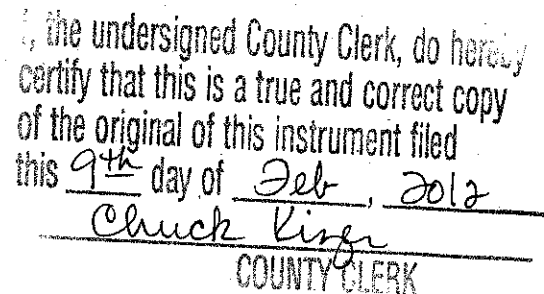 I, the undersigned County Clerk, do hereby
certify that this is a true and correct copy
of the original of this instrument filed
this 9th day of Feb, 2012
Chuck
COUNTY CLERK